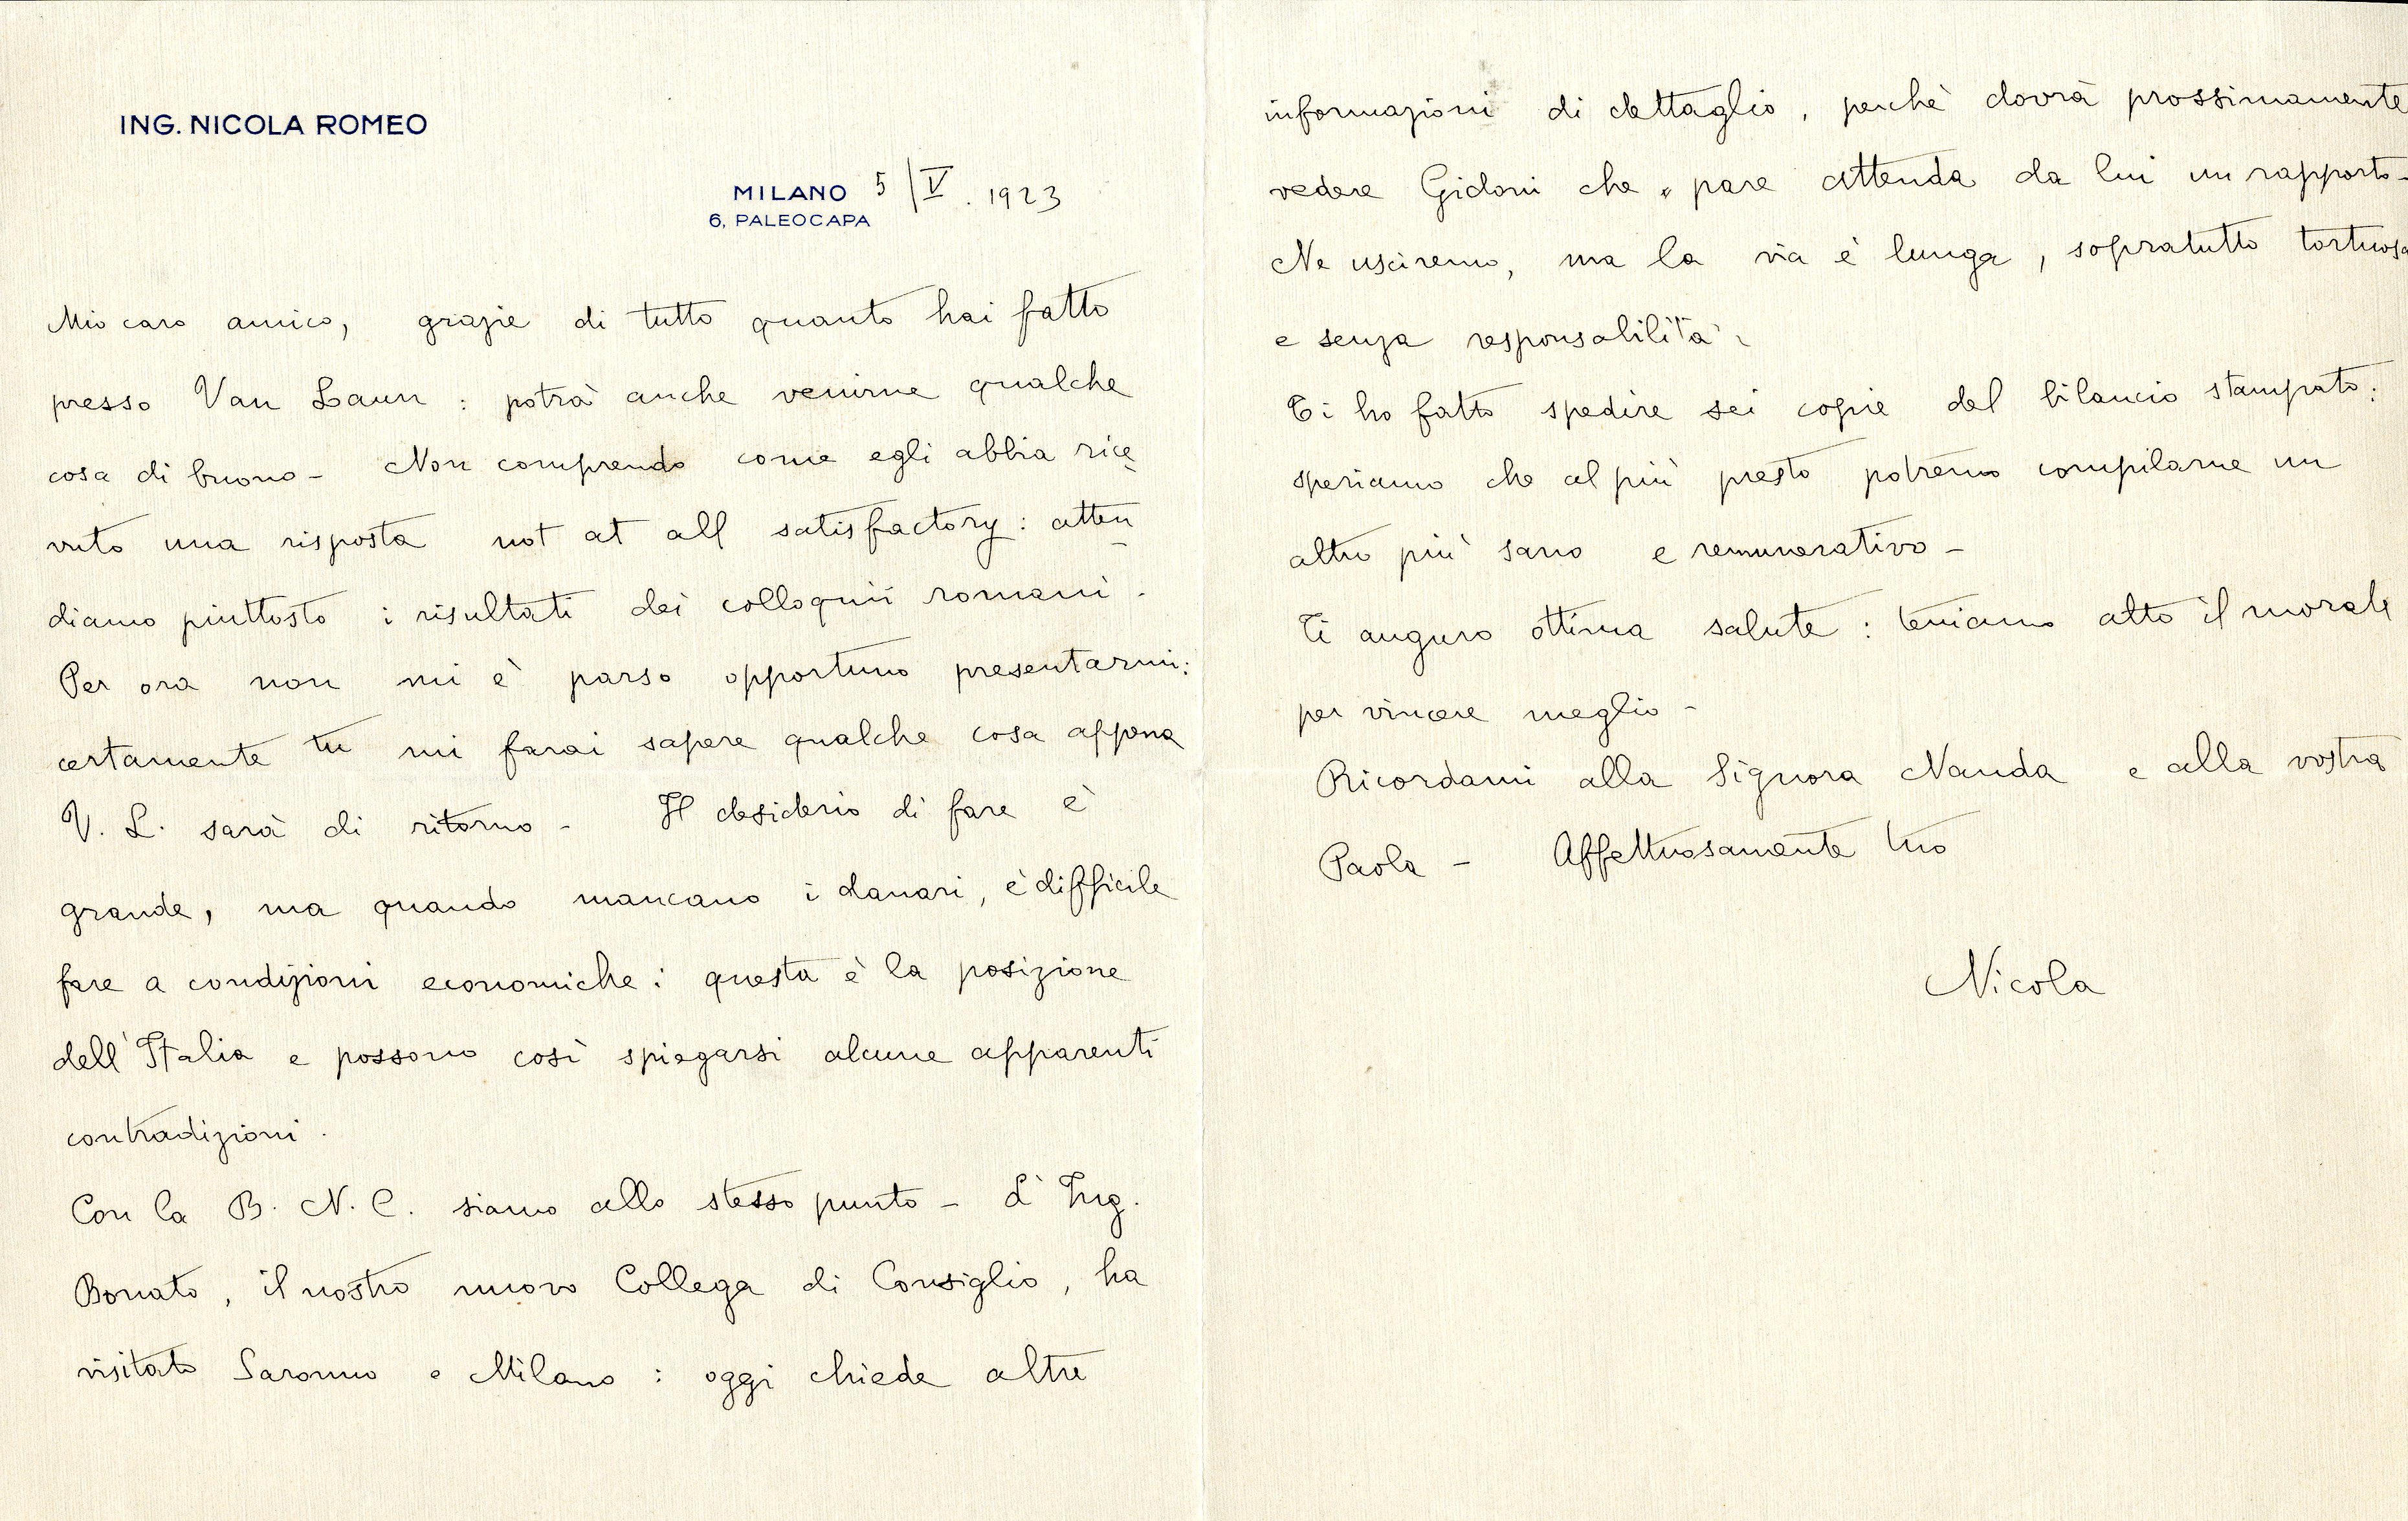 ING. NICOLA ROMEO
MILANO 5/V. 1923
6, PALEOCAPA
Mio caro amico, grazie di tutto quanto hai fatto
presso Van Laun : potrà anche venirne qualche
cosa di buono - Non comprendo come egli abbia rice
vuto una risposta not at all satisfactory : atten
diamo piuttosto i risultati dei colloquii romani.
Per ora non mi è parso opportuno presentarmi:
certamente tu mi farai sapere qualche cosa appena
V. L. sarà di ritorno - Il desiderio di fare è
grande, ma quando mancano i danari, è difficile
fare a condizioni economiche : questa è la posizione
dell'Italia e possono così spiegarsi alcune apparenti
contradizioni.
Con la B. N. C. siamo allo stesso punto - L'Ing.
Bonato, il nostro nuovo Collega di Consiglio, ha
visitato Saronno e Milano : oggi chiede altre
informazioni di dettaglio, perchè dovrà prossimamente
vedere Gidoni che pare attenda da lui un rapporto -
Ne usciremo, ma la via è lunga, sopratutto tortuosa
e senza responsabilità.
Ti ho fatto spedire sei copie del bilancio stampato:
speriamo che al più presto potremo compilarne un
altro più sano e remunerativo -
Ti auguro ottima salute : teniamo alto il morale
per vincere meglio -
Ricordami alla Signora Nanda e alla vostra
Paola - Affettuosamente tuo
Nicola